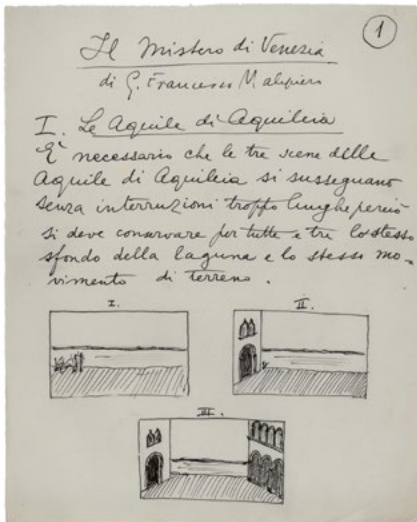 1
Il Mistero di Venezia
di G. Francesco Malipiero
I. Le Aquile di Aquileia
È necessario che le tre scene delle
Aquile di Aquileia si susseguano
senza interruzioni troppo lunghe perciò
si deve conservare per tutte e tre lo stesso
sfondo della laguna e lo stesso mo-
vimento di terreno.
I.
II.
III.